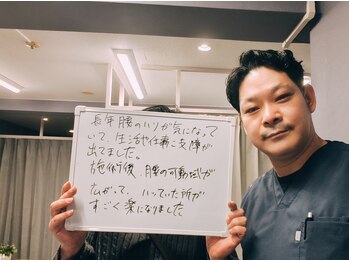 長年腰のハリが気になって
いて、生活や仕事に支障が
出てました。
施術後、腰の可動域が
広がって、ハっていた所が
すごく楽になりました